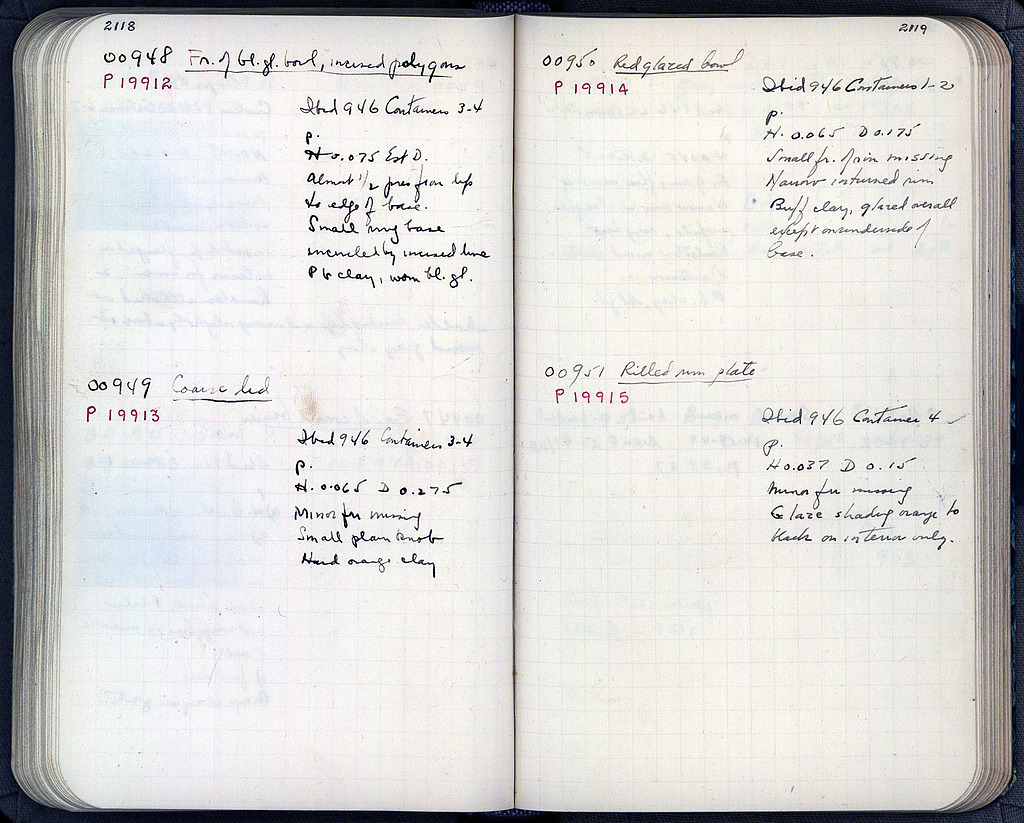 2118
OO948 Fr. of bl. gl. bowl, incised polygons
P 19912
Ibid 946 Containers 3-4
P.
H 0.075 Est D.
Almost 1/2 pres from lip
to edge of base.
Small ring base
encircled by incised line
clay, worn bl. gl.
OO949 Coarse lid
P 19913
Ibid 946 Containers 3-4
P.
H. 0.065 D 0.275
Minor frr missing
Small plain knob
Hard orange clay
2119
OO950 Red glazed bowl
P 19914
Ibid 946 Containers 1-2
P.
H. 0.065 D 0.175
Small fr. of rim missing
Narrow inturned rim
Buff clay, glazed overall
except on underside of
base.
OO951 Rilled rim plate
P 19915
Ibid 946 Container 4
P.
H 0.037 D 0.15
Minor frr missing
Glaze shading orange to
black on interior only.